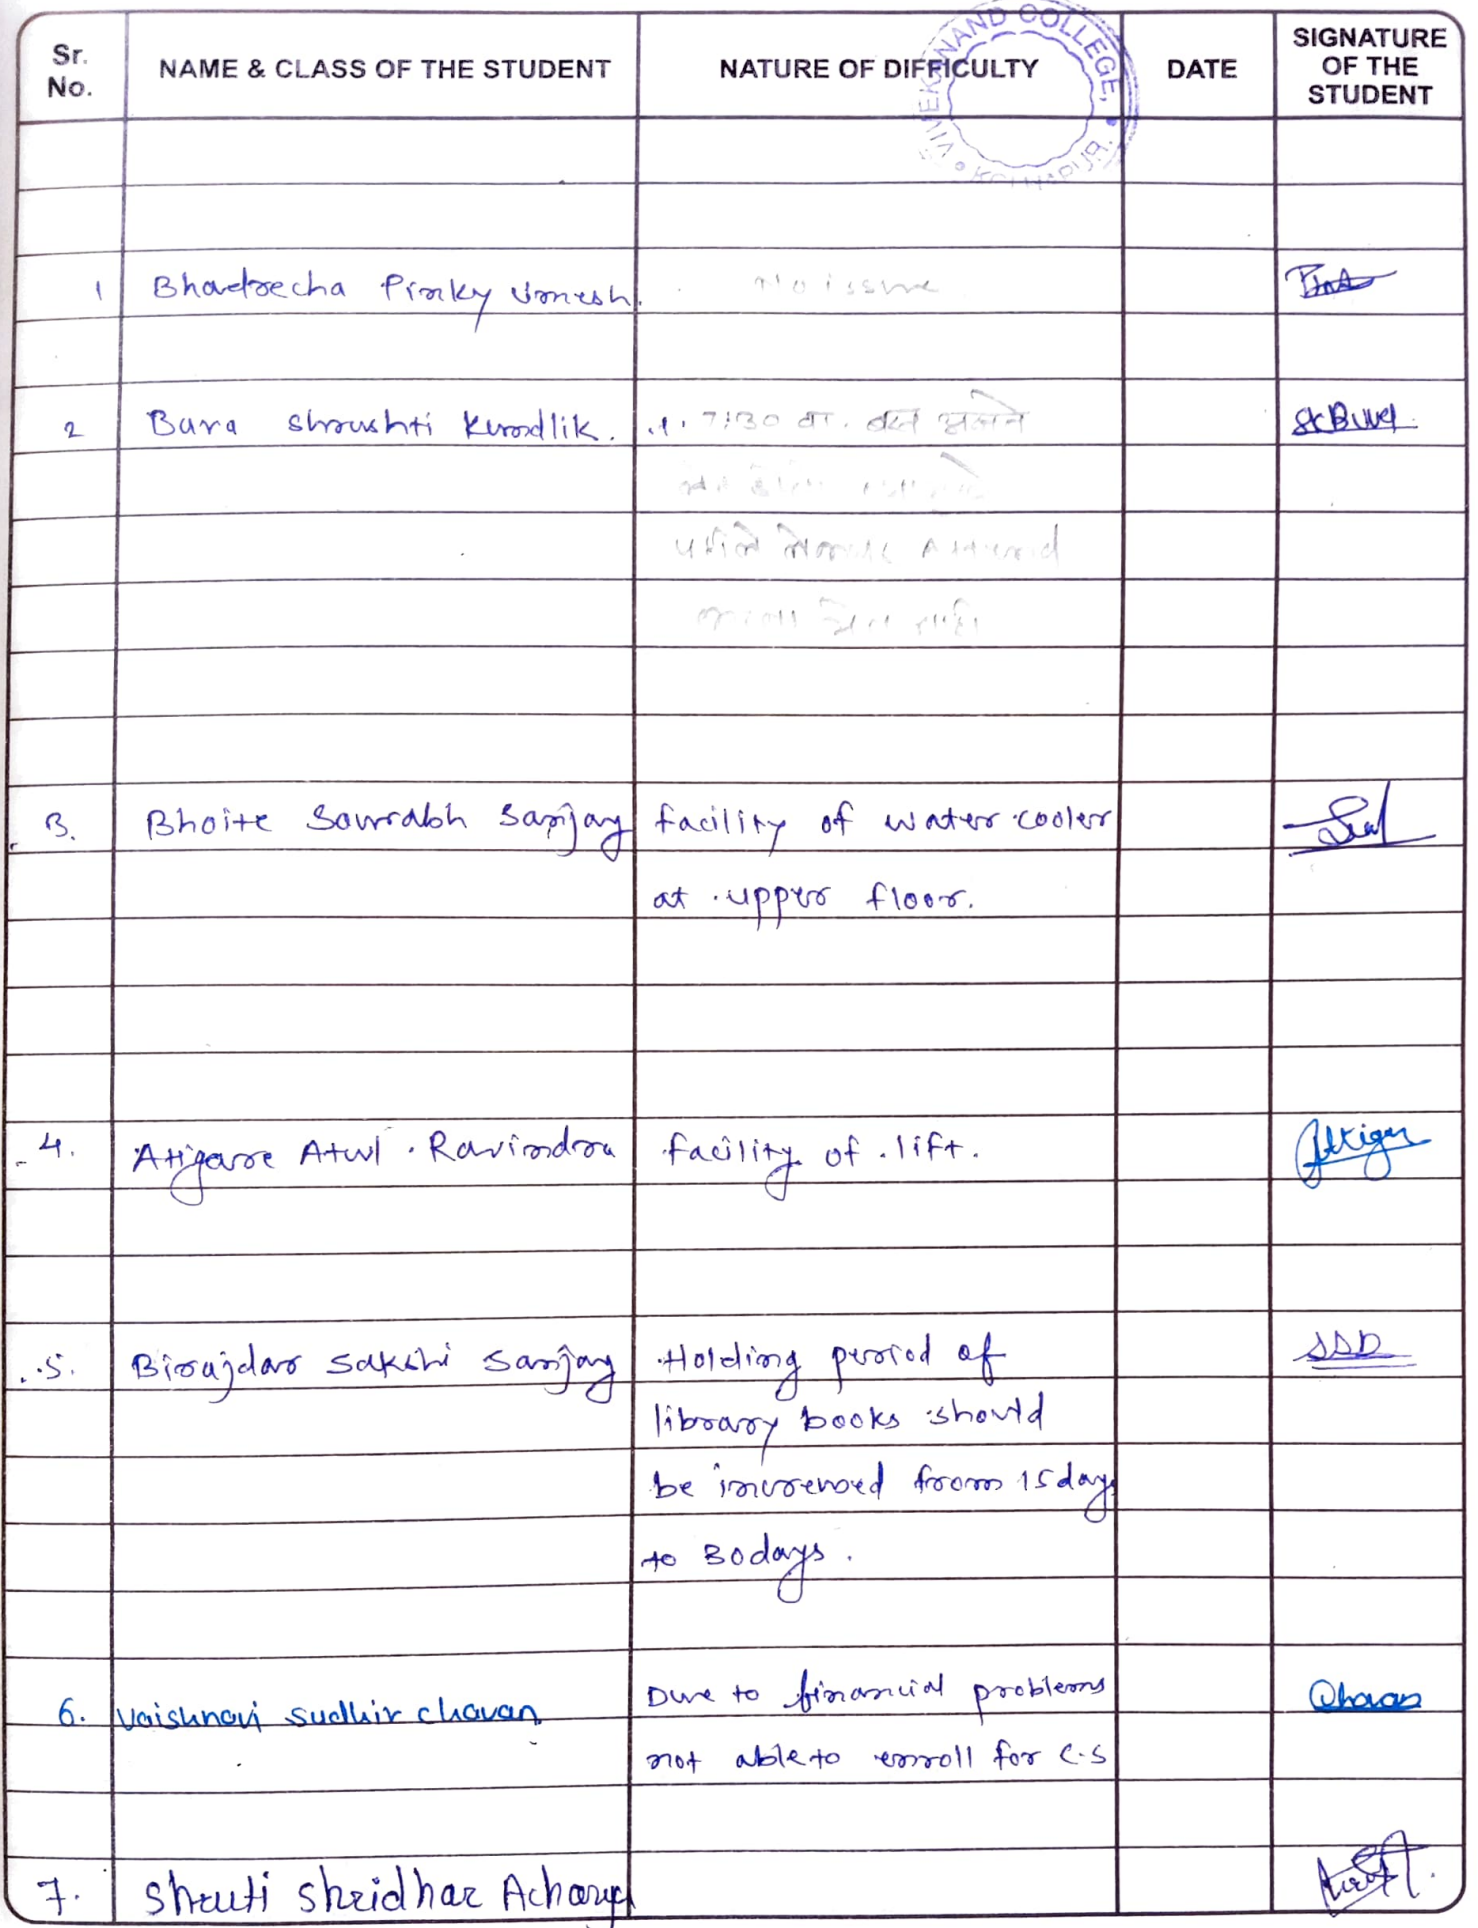 Sr. No.
NAME & CLASS OF THE STUDENT
NATURE OF DIFFICULTY
DATE
SIGNATURE OF THE STUDENT
VIVEKANAND COLLEGE,
1 Bhadrecha Pinky Umesh. No issue
2 Bura Shrushti Kundlik. 7:30 वा.
Attend
3. Bhoite Sourabh Sanjay facility of water cooler
at upper floor.
4. Atigare Atul Ravindra facility of lift.
5. Birajdar Sakshi Sanjay Holding period of
library books should
be increased from 15 days
to 30 days.
6. Vaishnavi Sudhir Chavan Due to financial problems
not able to enroll for C.S
7. Shruti Shridhar Acharya